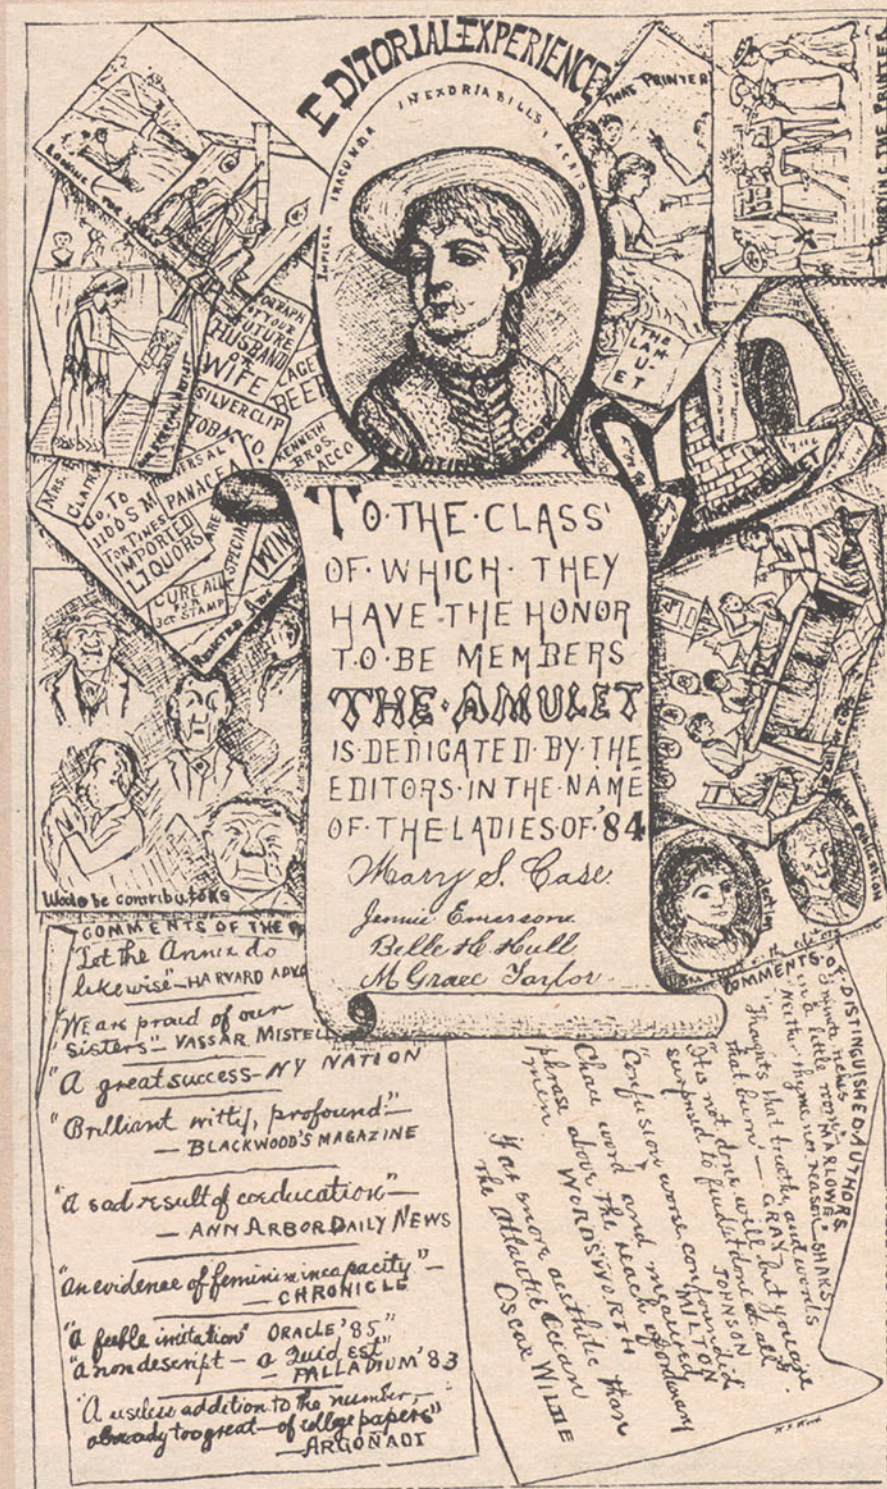 EDITORIAL EXPERIENCE
IMPIGIA IRACUNDA INEXORIABILLS, ACERS
THE FIGHTING EDITOR
THE PRINTER
THE
LAM-
U-
ET
HUSBAND
OR
WIFE
LAGE
BEER
SILVER CLIP
TOBACCO
KENNETH
BROS.
ACCO
MRS.
PANACEA
GO TO
FOR TINES
IMPORTED
LIQUORS
CURE ALL
FOR
3CT STAMP
A SPECIA
WIN
REJECTED ADV
Would be contributors
TO·THE·CLASS'
OF·WHICH·THEY
HAVE·THE HONOR
TO·BE MEMBERS
THE·AMULET
IS·DEDICATED·BY·THE
EDITORS·IN THE·NAME
OF·THE LADIES OF·'84
Mary S. Case.
Jennie Emerson
Belle H Hull
M Grace Taylor
COMMENTS OF THE P
"Let the Annex do
likewise"—HARVARD ADVO
"We are proud of our
sisters"— VASSAR MISTELL
"A great success— NY NATION
"Brilliant witty, profound."—
—BLACKWOOD'S MAGAZINE
"a sad result of coeducation"—
— ANN ARBOR DAILY NEWS
"an evidence of feminine incapacity"—
—CHRONICLE
"A feeble imitation" ORACLE '85"
"a nondescript— a Quid est"
— PALLADIUM '83
"A useless addition to the number,—
already too great—of college papers"
—ARGONAUT
COMMENTS·OF·DISTINGUISHED·AUTHORS.
in a little room"—MARLOWE
"Neither rhyme nor reason"—SHAKS
"Thoughts that breathe, and words
that burn"— GRAY
"It is not done well but you are
surprised to find it done at all"
JOHNSON
"Confusion worse confounded
MILTON
Chau word and measured
phrase above the reach of ordinary
men. WORDSWORTH
Far more aesthetic than
the Atlantic Ocean
OSCAR WILDE